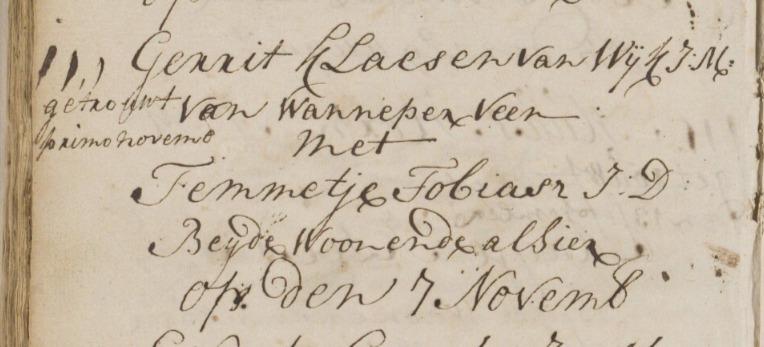 11,) Gerrit Claesen van Wijk J: M:
getrouwt van Wanneper veen
primo novemb met
Femmetje Tobiasz J. D
Beyde Woonende alhier
op den 7 Novemb